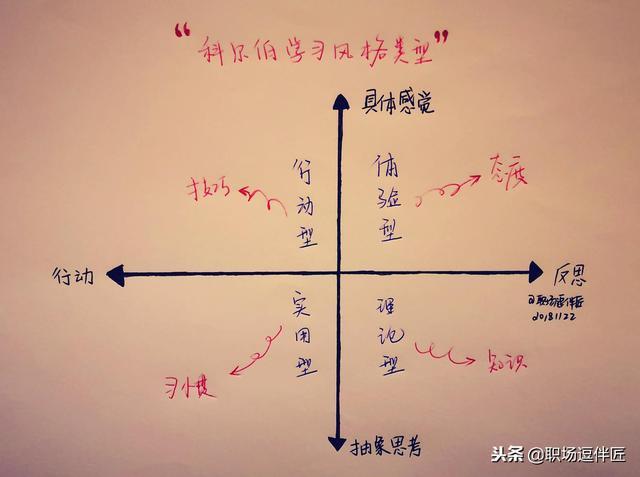 “科尔伯学习风格类型”
具体感觉
行动型
体验型
技巧
态度
行动
反思
@职场逗伴匠
20181122
实用型
理论型
习惯
知识
抽象思考
头条 @职场逗伴匠